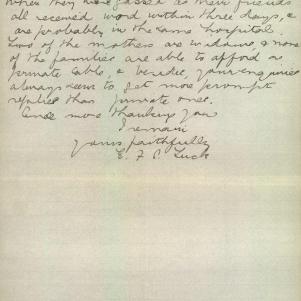 when they were gassed as their friends
all received word within three days, &
are probably in the same hospital.
Two of the mothers are widows, & none
of the families are able to afford a
private cable, & besides, your enquiries
always seem to get more prompt
replies than private ones.
Once more thanking you
I remain
yours faithfully
E. F. Luck